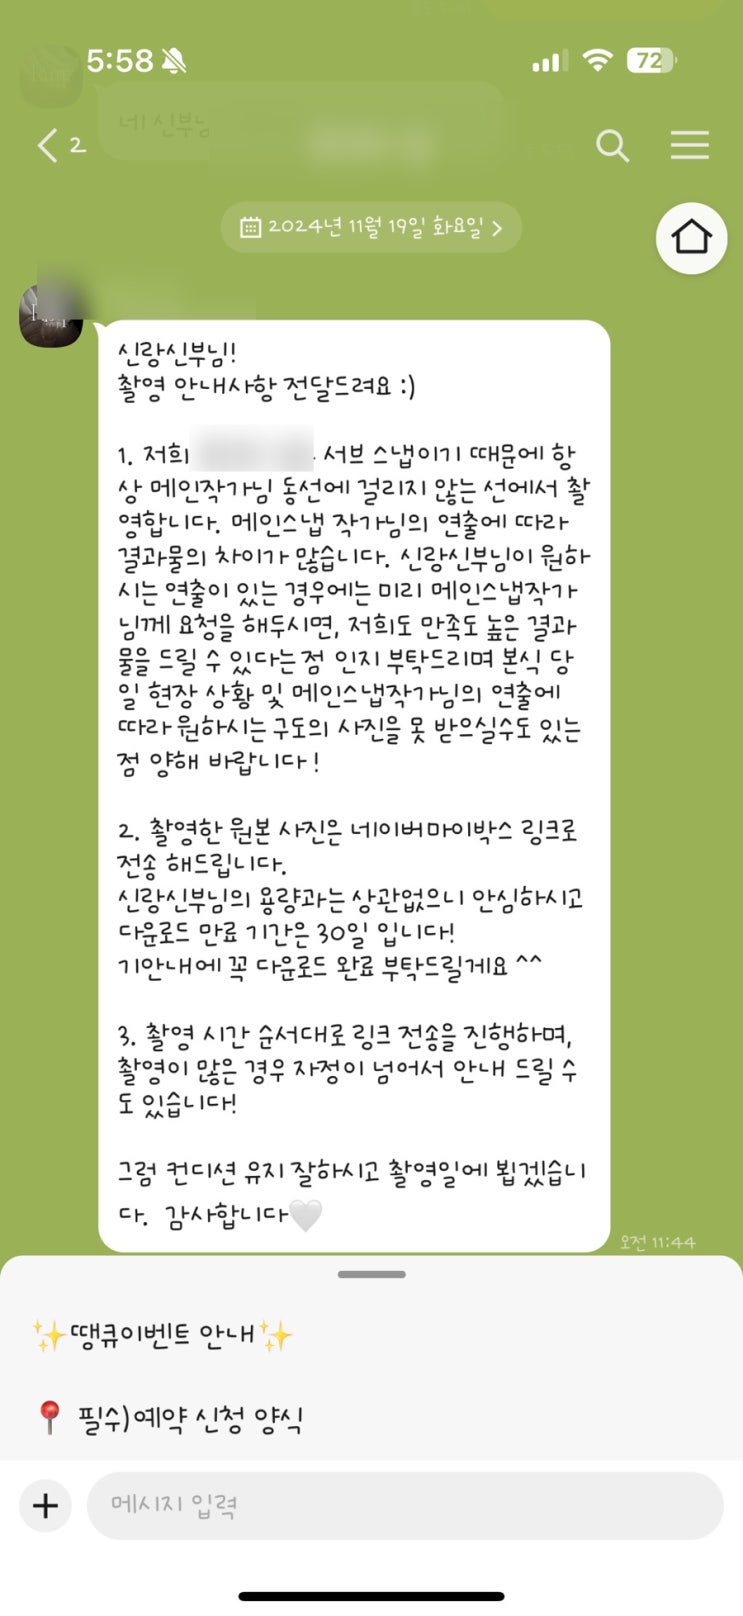 5:58
72
네 신부님
2
2024년 11월 19일 화요일
신랑신부님!
촬영 안내사항 전달드려요 :)
1. 저희 서브 스냅이기 때문에 항
상 메인작가님 동선에 걸리지 않는 선에서 촬
영합니다. 메인스냅 작가님의 연출에 따라
결과물의 차이가 많습니다. 신랑신부님이 원하
시는 연출이 있는 경우에는 미리 메인스냅작가
님께 요청을 해두시면, 저희도 만족도 높은 결과
물을 드릴 수 있다는 점 인지 부탁드리며 본식 당
일 현장 상황 및 메인스냅작가님의 연출에
따라 원하시는 구도의 사진을 못 받으실수도 있는
점 양해 바랍니다 !
2. 촬영한 원본 사진은 네이버마이박스 링크로
전송 해드립니다.
신랑신부님의 용량과는 상관없으니 안심하시고
다운로드 만료 기간은 30일 입니다!
기안내에 꼭 다운로드 완료 부탁드릴게요 ^^
3. 촬영 시간 순서대로 링크 전송을 진행하며,
촬영이 많은 경우 자정이 넘어서 안내 드릴 수
도 있습니다!
그럼 컨디션 유지 잘하시고 촬영일에 뵙겠습니
다. 감사합니다🤍
오전 11:44
✨땡큐이벤트 안내✨
📍 필수)예약 신청 양식
메시지 입력